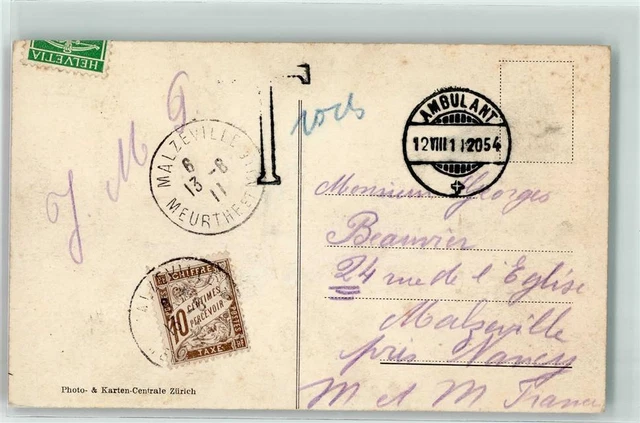 HELVETIA
J M G
MALZÉVILLE
6 -6
13
11
MEURTHE ET
T
10 cts
AMBULANT
12 VIII 11 2054
Monsieur Georges
Beauvier
24 rue de l'Eglise
Malzéville
près Nancy
M et M France
CHIFFRES
10
CENTIMES
A PERCEVOIR
POSTES
TAXE
Photo- & Karten-Centrale Zürich